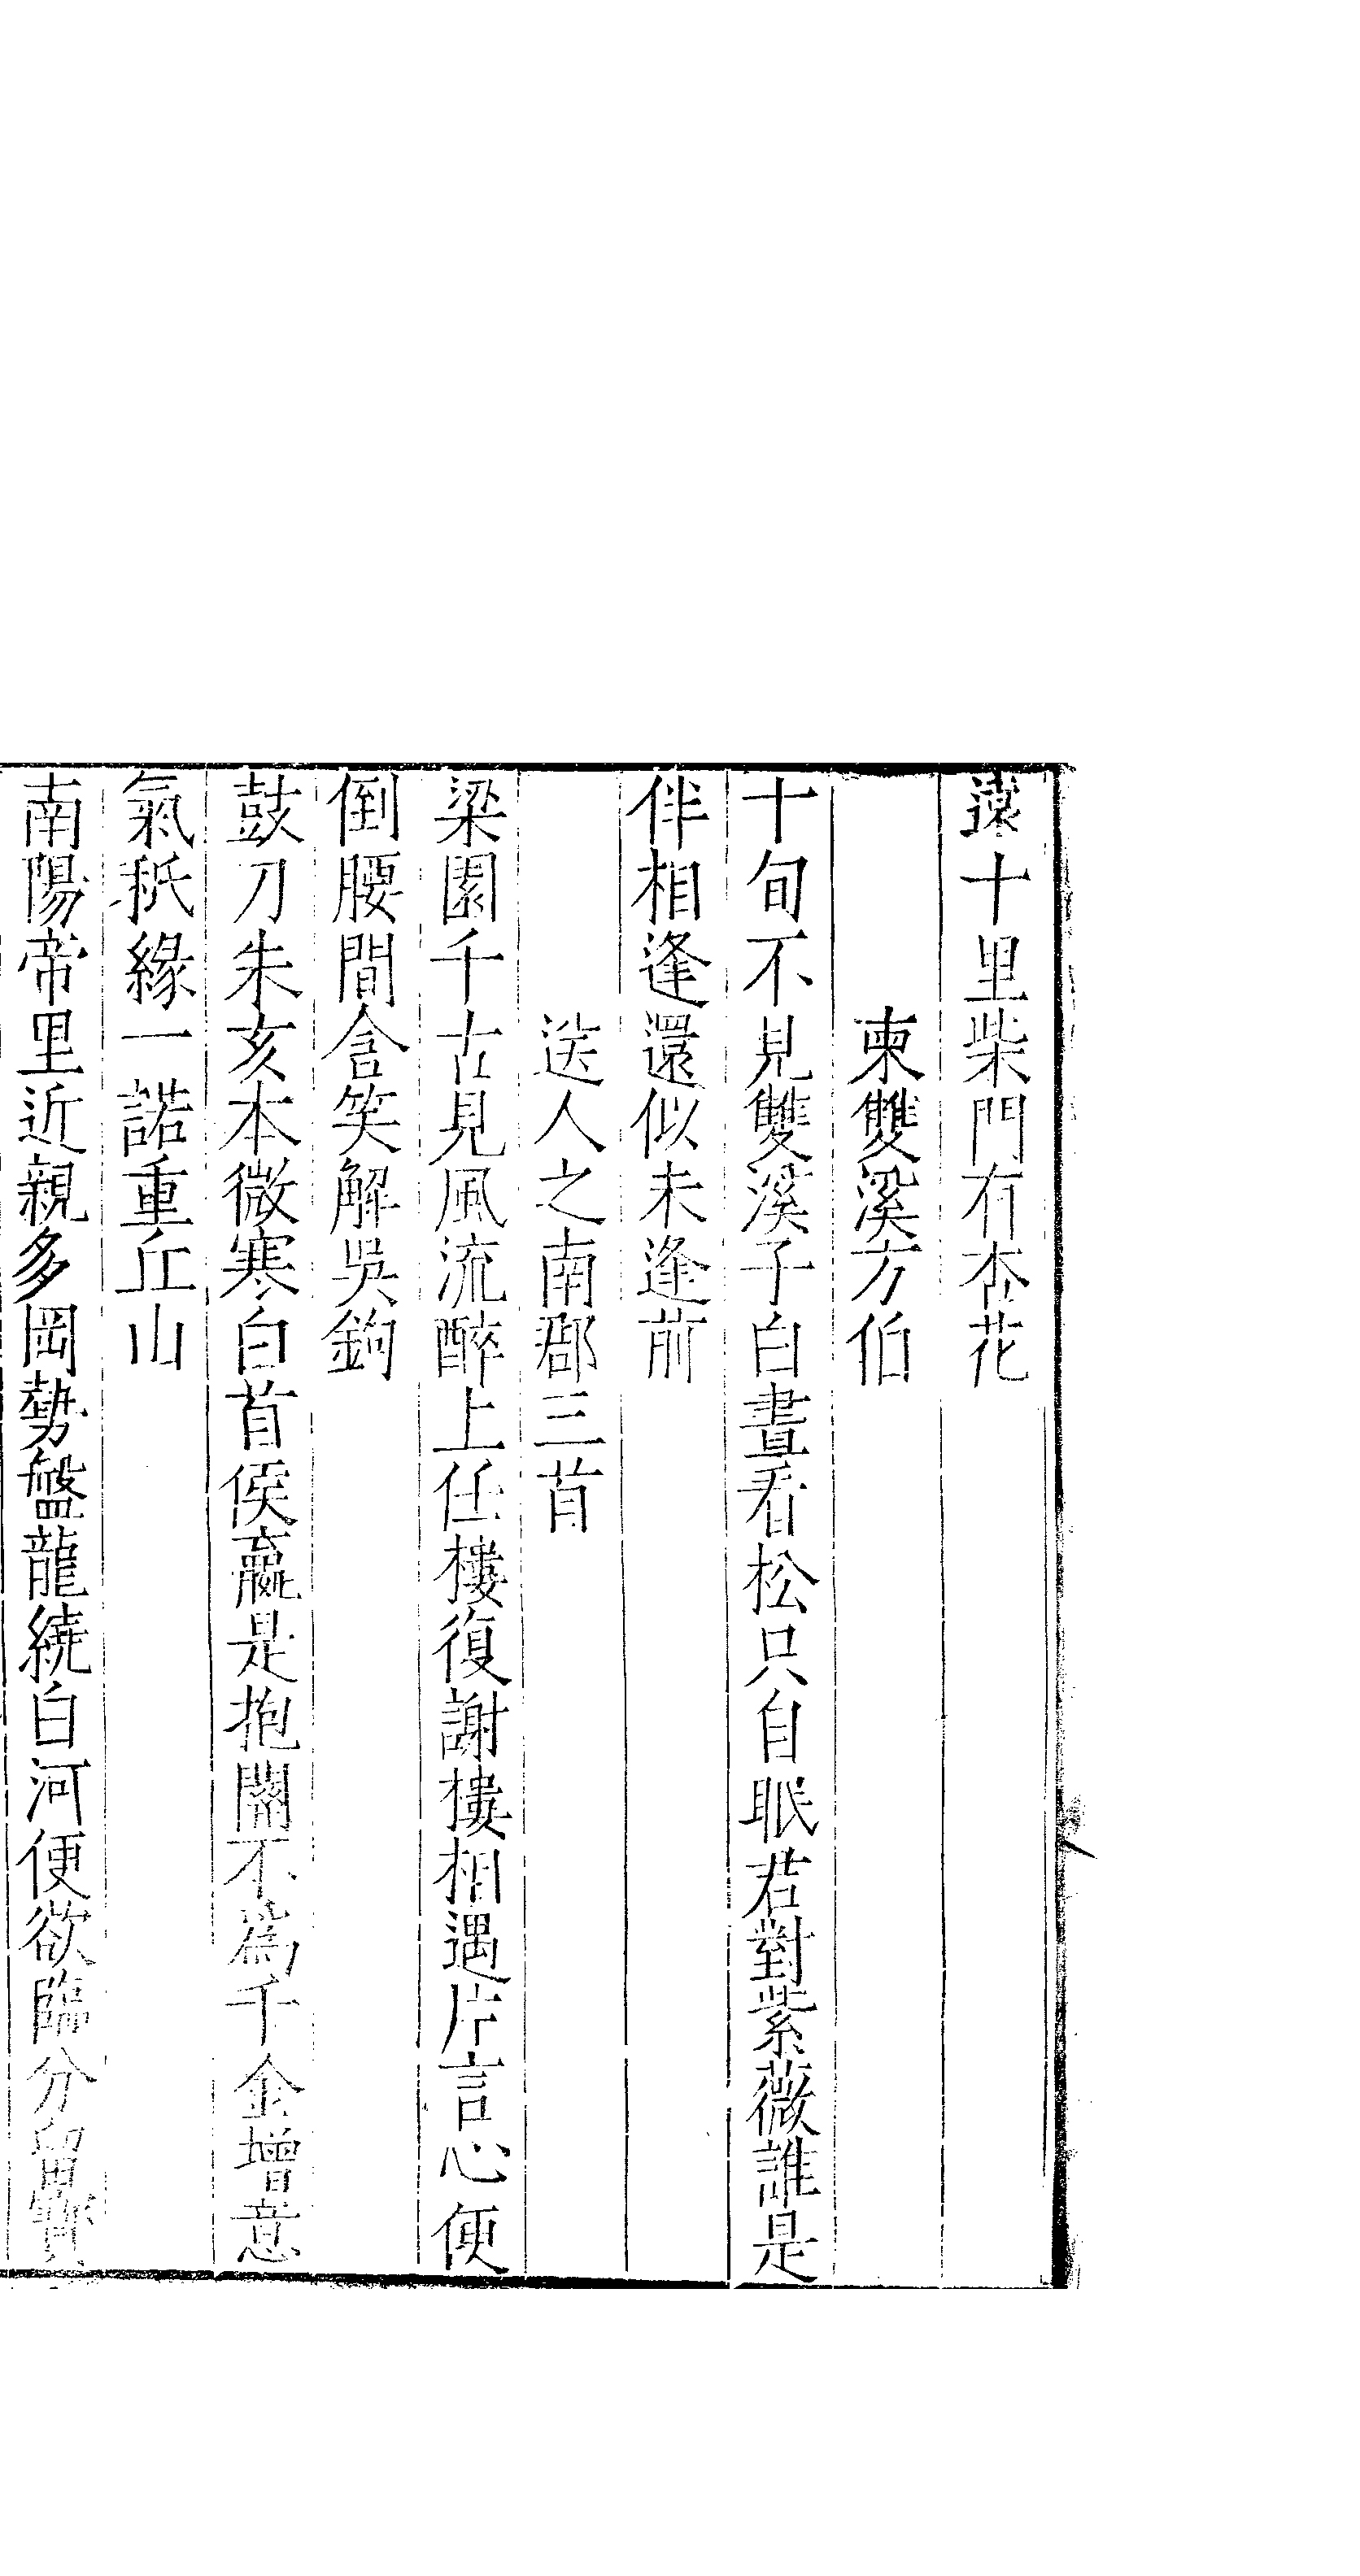 遠十里柴門有杏花
柬雙溪方伯
十旬不見雙溪子白晝看松只自眠君對紫薇誰是
伴相逢還似未逢前
送人之南郡三首
梁園千古見風流醉上任樓復謝樓相遇片言心便
倒腰間含笑解吳鉤
鼓刀朱亥本微寒白首侯嬴是抱關不為千金增意
氣秖緣一諾重丘山
南陽帝里近親多岡勢盤龍繞白河便欲臨分留寶